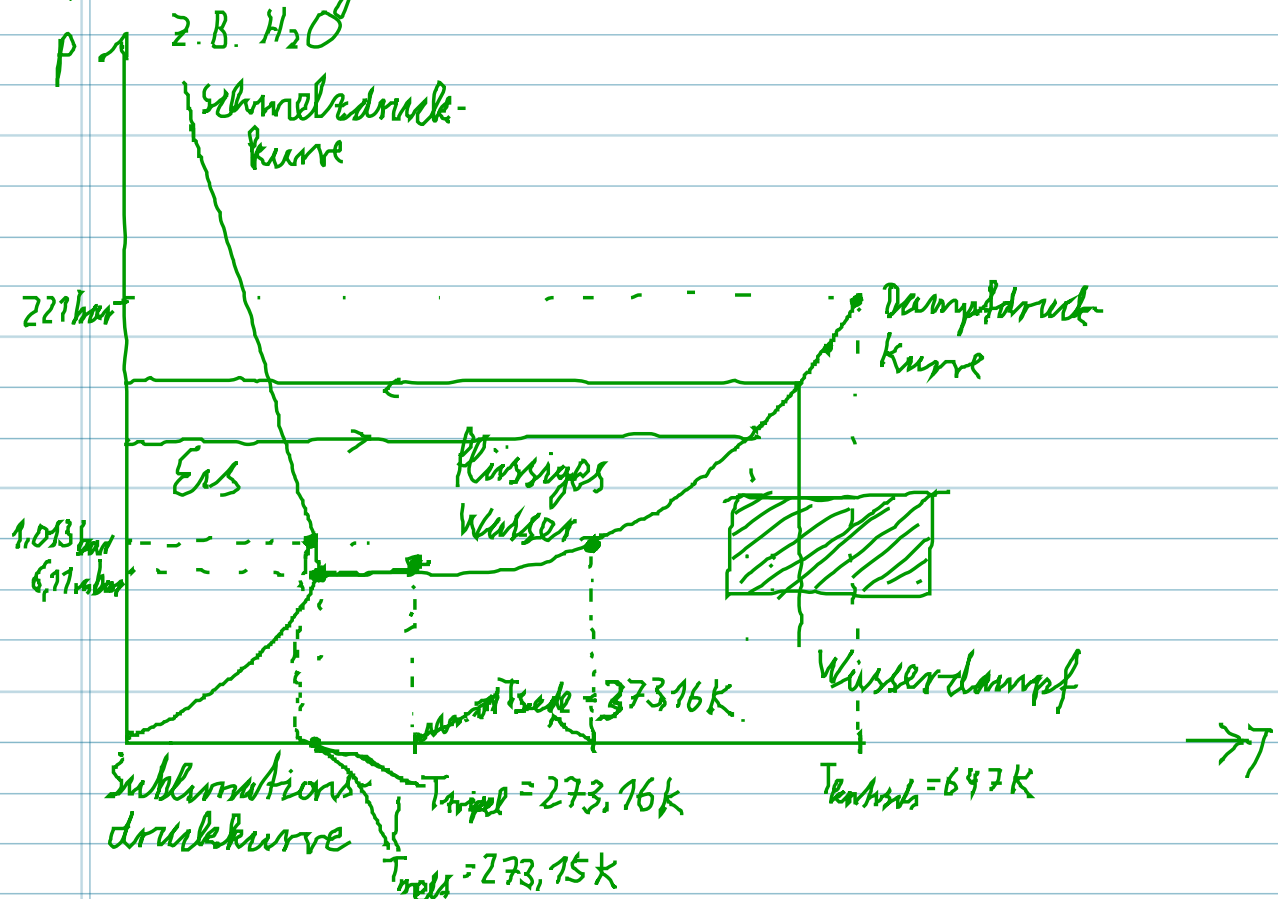 P
z.B. H₂O
Schmelzdruck-
kurve
221 bar
Dampfdruck
kurve
Eis
flüssiges
Wasser
1,013 bar
6,11 mbar
Wasserdampf
= 373,16 K
T
Sublimations-
druckkurve
T_tripel = 273,16 K
T_kritisch = 647 K
= 273,15 K